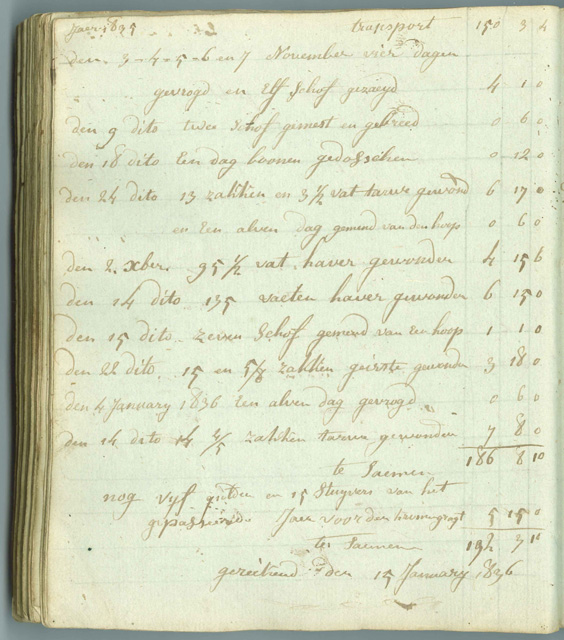 jaer 1835 transport 150 3 4
den 3-4-5-6 en 7 November vier dagen
gevrogd en Elf Schof gezaeyd 4 1 0
den 9 dito twee Schof gemest en gebreed 0 6 0
den 18 dito Een dag boonen gedosschen 0 12 0
den 24 dito 13 zakkien en 3 1/2 vat tarwe gewond 6 17 0
en Een alven dag gemend van den hoop 0 6 0
den 2 xber 95 1/2 vat haver gewonden 4 15 6
den 14 dito 135 vaeten haver gewonden 6 15 0
den 15 dito zeven Schof gemend van Een hoop 1 1 0
den 22 dito 15 en 5/8 zakkien geirste gewonden 3 18 0
den 4 January 1836 Een alven dag gevrogd 0 6 0
den 14 dito 14 4/5 zakkien tarwe gewonden 7 8 0
te Saemen 186 8 10
nog vyf gulden en 15 Stuyvers van het
gepasseerde Jaer voor den 5 15 0
te Saemen 192 3 10
gereekend den 15 January 1836